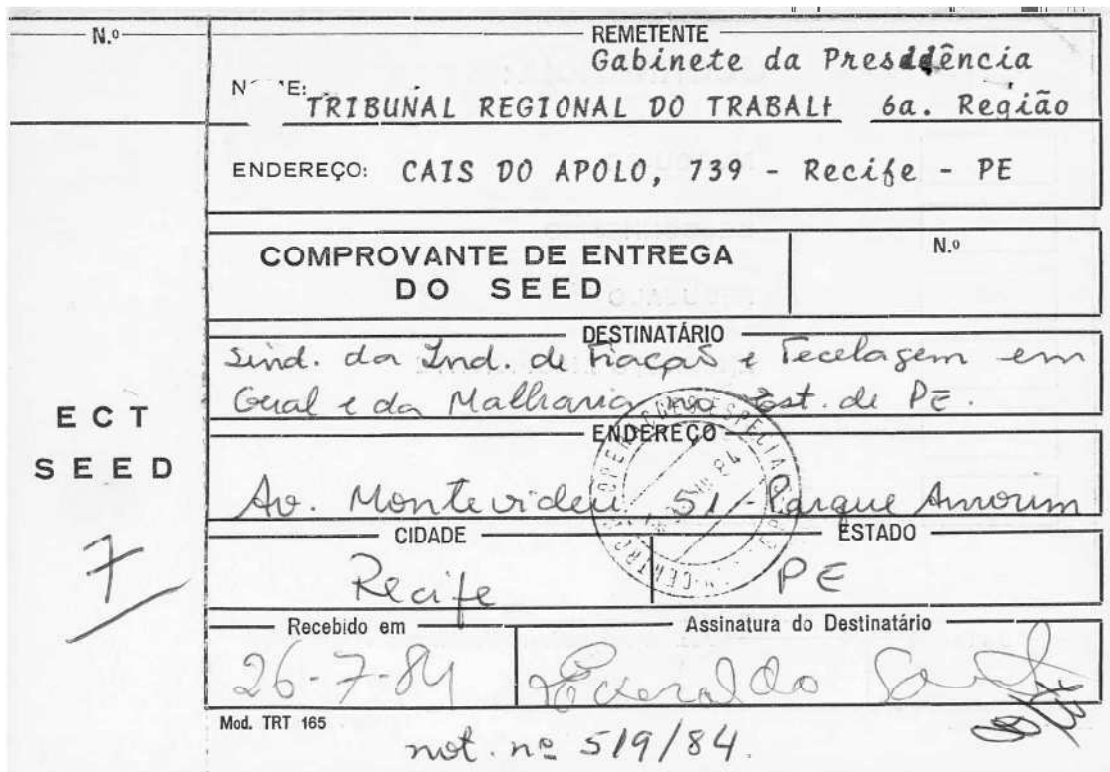 N.º
REMETENTE
Gabinete da Presidência
TRIBUNAL REGIONAL DO TRABALH 6a. Região
ENDEREÇO: CAIS DO APOLO, 739 - Recife - PE
COMPROVANTE DE ENTREGA
DO SEED
N.º
DESTINATÁRIO
Sind. da Ind. de Fiação e Tecelagem em
Geral e da Malharia no Est. de PE.
ECT
SEED
7
ENDEREÇO
Av. Montevideu, 51 - Parque Amorim
CIDADE
ESTADO
Recife
PE
Recebido em
Assinatura do Destinatário
26-7-84
Mod. TRT 165
not. nº 519/84.